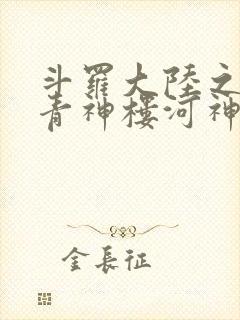 斗羅大陸之
青神樓河神
金長征